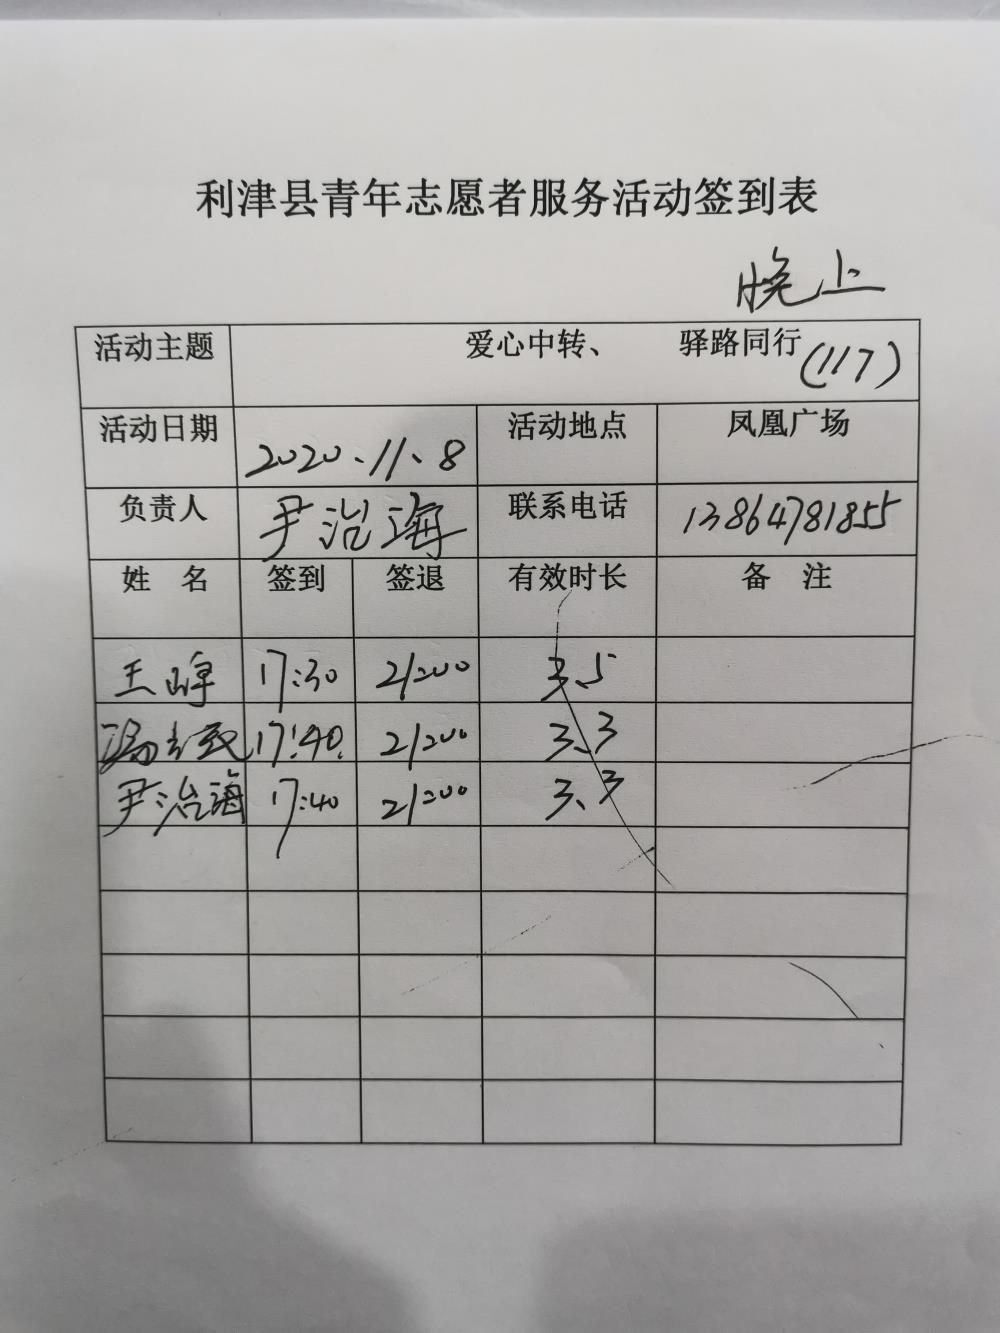 利津县青年志愿者服务活动签到表
晚上
活动主题 爱心中转、 驿路同行 (117)
活动日期 2020.11.8 活动地点 凤凰广场
负责人 尹治海 联系电话 13864781855
姓 名 签到 签退 有效时长 备 注
王峰 17:30 21:00 3.5
17:40 21:00 3.3
尹治海 17:40 21:00 3.3